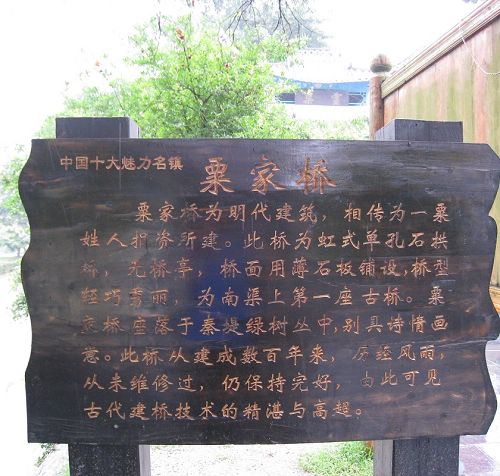 中国十大魅力名镇
粟家桥
粟家桥为明代建筑，相传为一粟
姓人捐资所建。此桥为虹式单孔石拱
桥，无桥亭，桥面用薄石板铺设，桥型
轻巧秀丽，为南渠上第一座古桥。粟
家桥座落于秦堤绿树丛中，别具诗情画
意。此桥从建成数百年来，历经风雨，
从未维修过，仍保持完好，由此可见
古代建桥技术的精湛与高超。